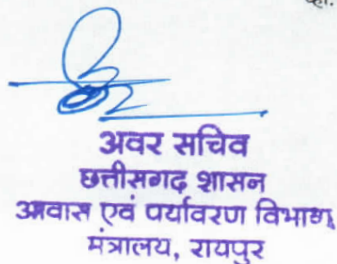 अवर सचिव
छत्तीसगढ़ शासन
आवास एवं पर्यावरण विभाग,
मंत्रालय, रायपुर